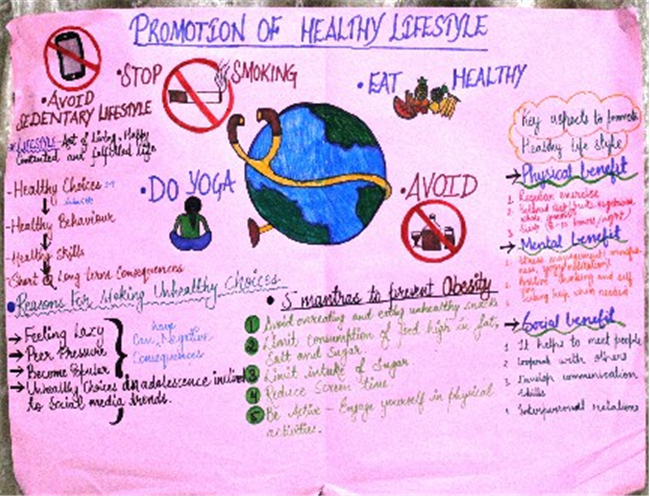 PROMOTION OF HEALTHY LIFESTYLE
• STOP SMOKING
• EAT HEALTHY
• AVOID
SEDENTARY LIFESTYLE
LIFESTYLE - Art of Living, Happy
Contented and fulfilled life
- Healthy Choices
- Healthy Behaviour
- Healthy Skills
- Short & Long term Consequences
• DO YOGA
• AVOID
• Reasons for Making Unhealthy Choices
→ Feeling Lazy
→ Peer Pressure
→ Become Popular
→ Unhealthy Choices in adolescence
to Social media trends.
have
Can Negative
Consequences
• 5 mantras to prevent Obesity
1 Avoid overeating and eating unhealthy snacks
2 Limit consumption of food high in fat,
Salt and Sugar.
3 Limit intake of Sugar
4 Reduce Screen time
5 Be Active - Engage yourself in physical
activities.
Key aspects to promote
Healthy life style
→ Physical benefit
1. Regular exercise
2. Balanced diet
3. Sleep hours/night
→ Mental benefit
1. Stress management
yoga, meditation
2. Positive thinking and self
3. Seeking help when needed
→ Social benefit
1. It helps to meet people
2. Cooperate with others
3. Develop communication
skills
4. Interpersonal relations